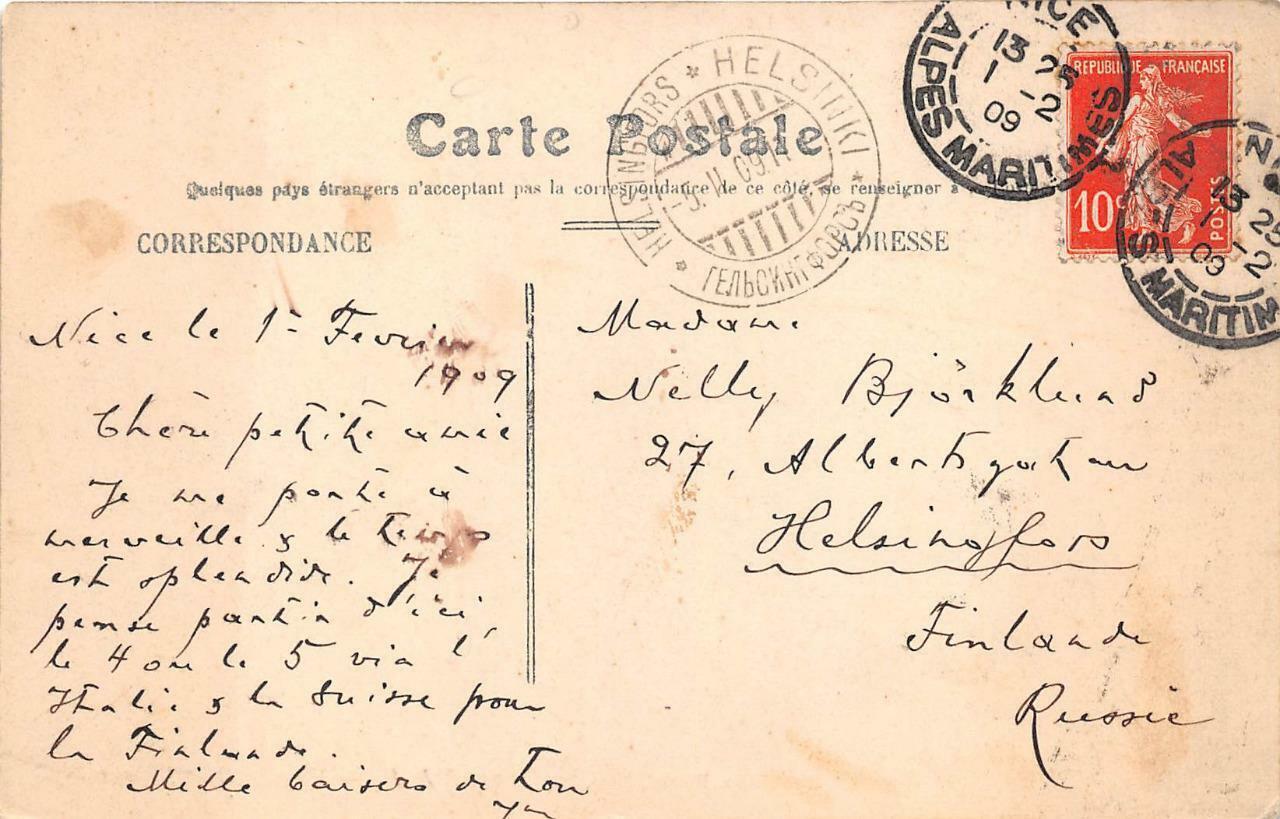 Carte Postale
Quelques pays étrangers n'acceptant pas la correspondance de ce côté, se renseigner à
CORRESPONDANCE
ADRESSE
HELSINKI
HELSINGFORS
ГЕЛЬСИНГФОРСЪ
5.II.09
NICE
13 25
1 -2
09
ALPES MARITIMES
REPUBLIQUE FRANÇAISE
10c
POSTES
13 25
1 -2
09
MARITIM
Nice le 1 - Fevrier
1909
Chère petite amie
Je me porte à
merveille & le temps
est splendide. Je
pense partir d'ici,
le 4 ou le 5 via l'
Italie & la Suisse pour
la Finlande.
Mille baisers de ton
Madame
Nelly Björklund
27, Albertsgatan
Helsingfors
Finlande
Russie